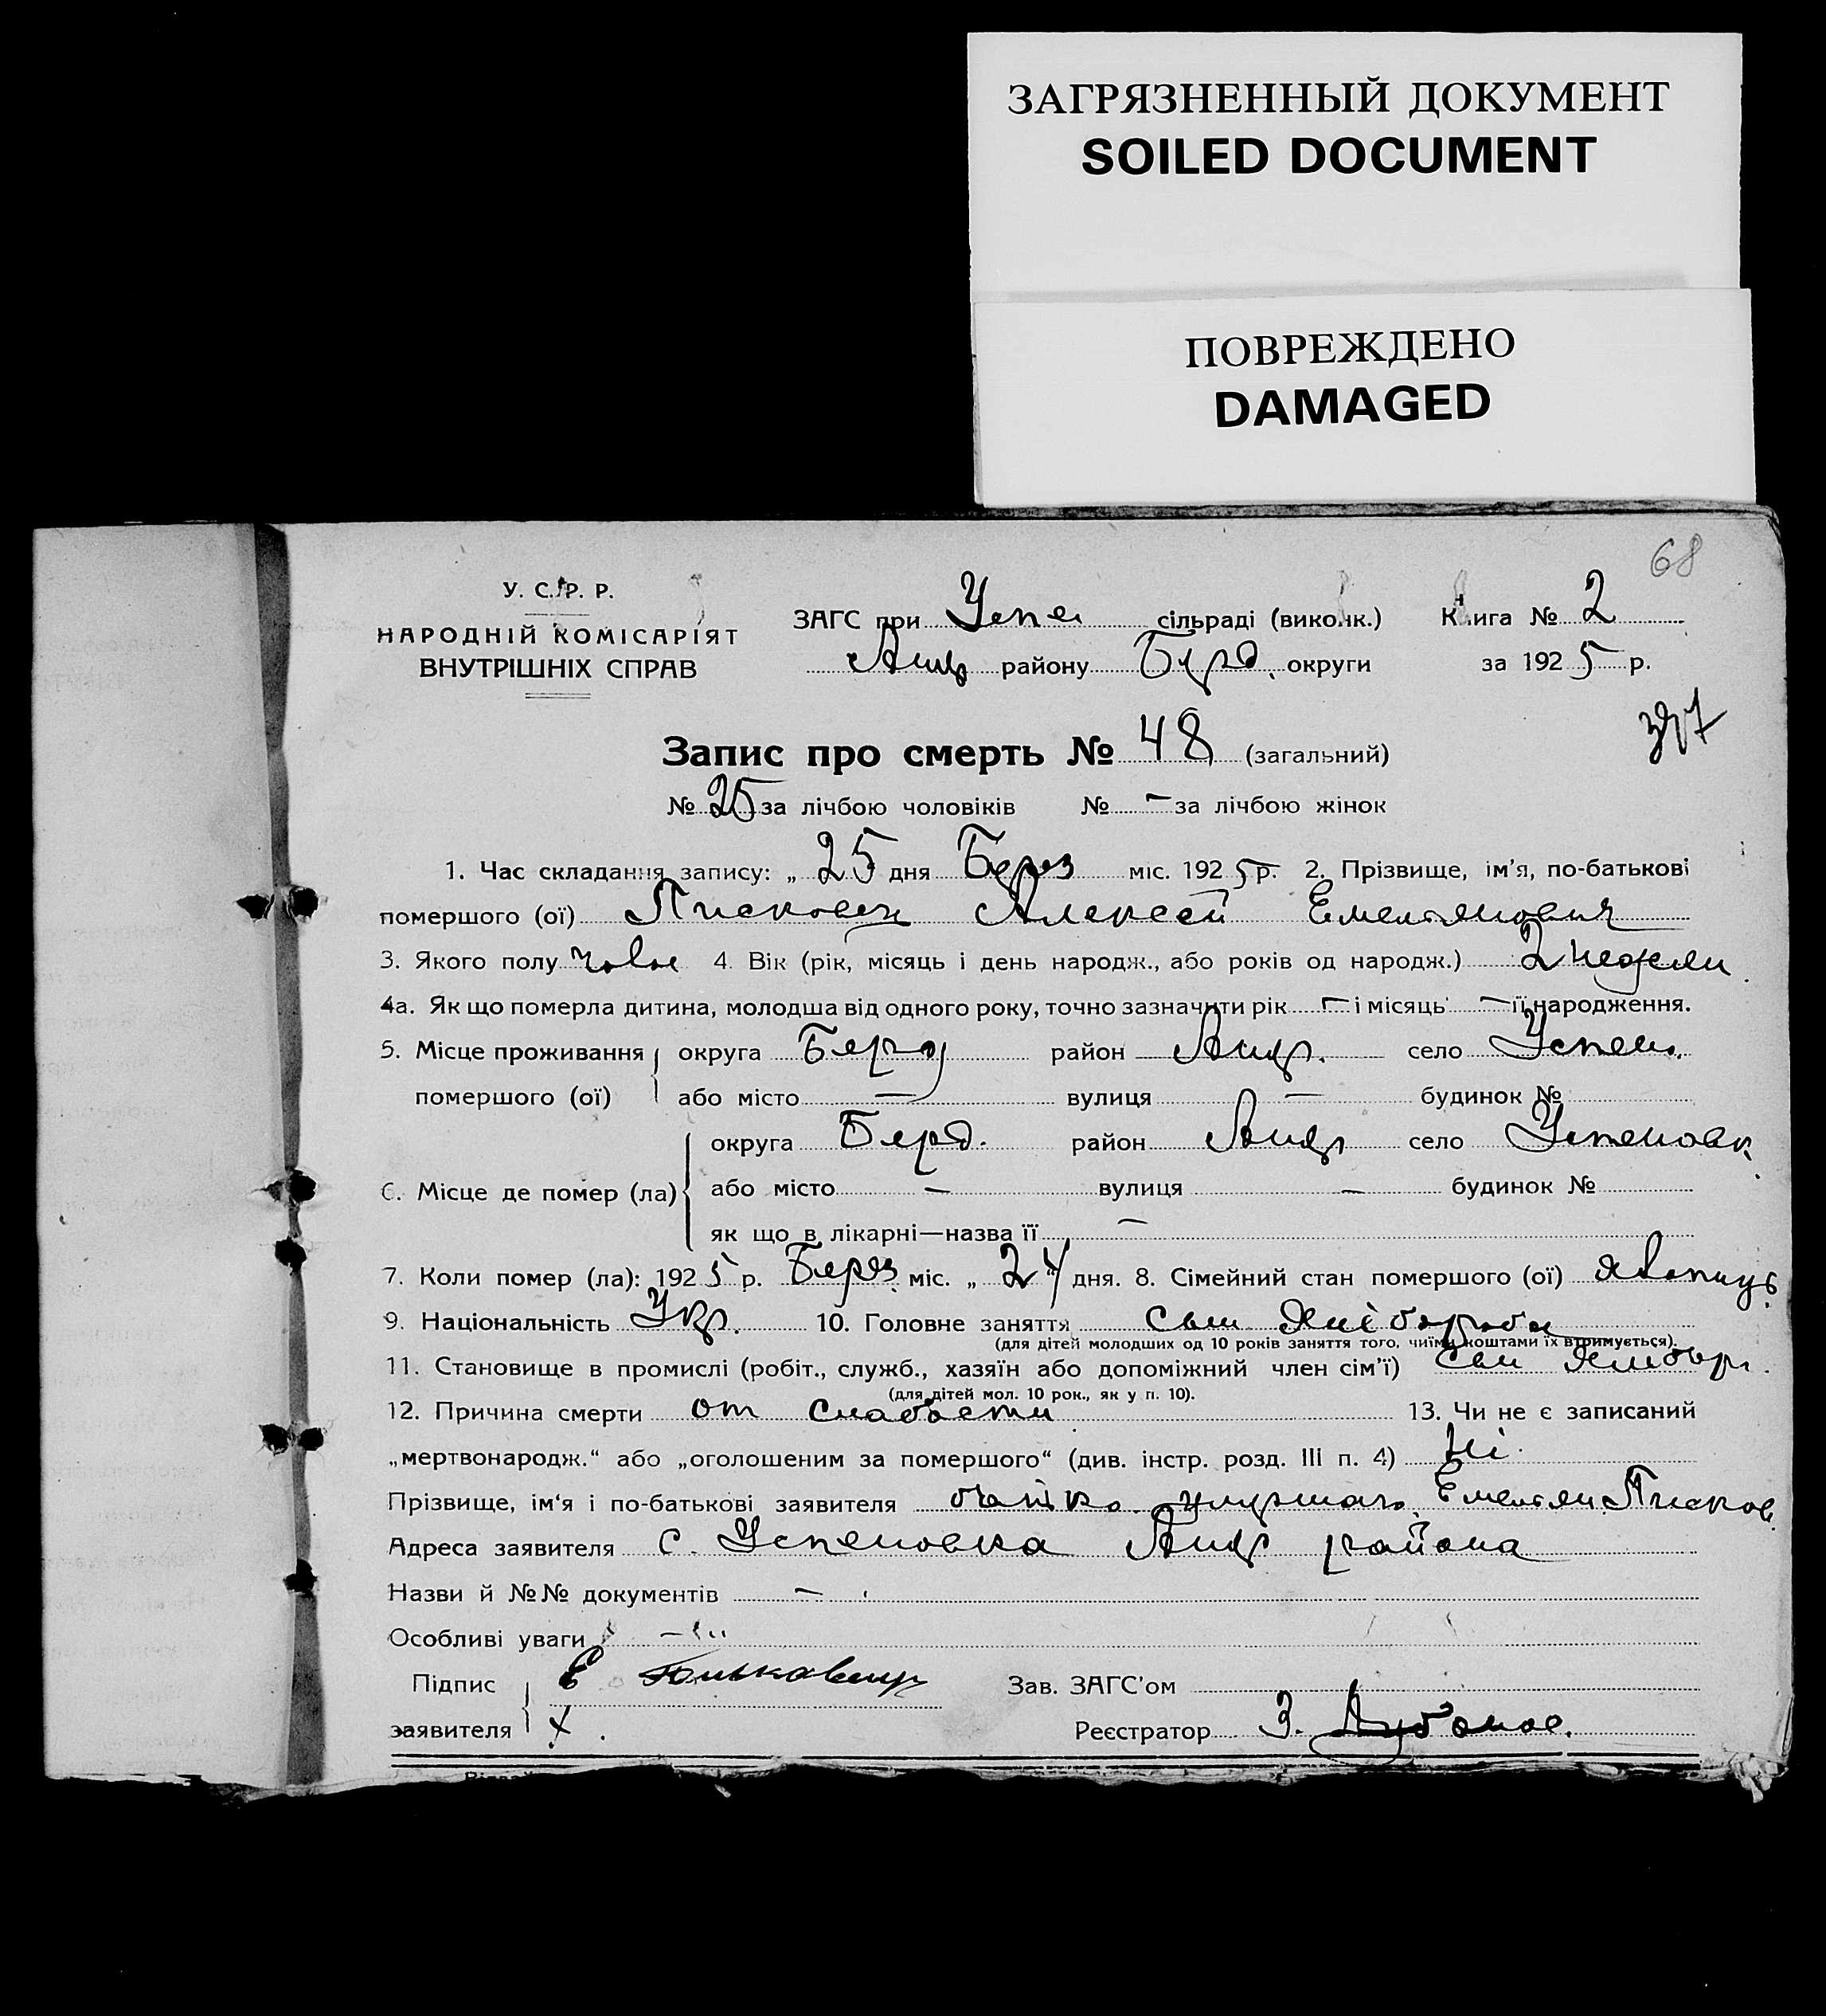 ЗАГРЯЗНЕННЫЙ ДОКУМЕНТ
SOILED DOCUMENT
ПОВРЕЖДЕНО
DAMAGED
68
У. С. Р. Р.
НАРОДНІЙ КОМІСАРІЯТ
ВНУТРІШНІХ СПРАВ
ЗАГС при Успе сільраді (виконк.) Книга № 2
Андр району Берд. округи за 1925 р.
Запис про смерть № 48 (загальний)
№ 25 за лічбою чоловіків № - за лічбою жінок
1. Час складання запису: „ 25 дня Берез міс. 1925 р. 2. Прізвище, ім'я, по-батькові
помершого (ої) Алексей Емельянович
3. Якого полу 4. Вік (рік, місяць і день народж., або років од народж.) 2 недели
4а. Як що померла дитина, молодша від одного року, точно зазначити рік — і місяць — її народження.
5. Місце проживання округа Берд район Андр. село Успен.
помершого (ої) або місто — вулиця — будинок №
округа Берд. район Андр село Успеновк
6. Місце де помер (ла) або місто — вулиця — будинок №
як що в лікарні—назва її —
7. Коли помер (ла): 1925 р. Берез міс. „ 24 " дня. 8. Сімейний стан помершого (ої)
9. Національність Укр. 10. Головне заняття сын Хлібороба
(для дітей молодших од 10 років заняття того, чиїми коштами їх втримується).
11. Становище в промислі (робіт., служб., хазяїн або допоміжний член сім'ї) сын
(для дітей мол. 10 рок., як у п. 10).
12. Причина смерти от слабости 13. Чи не є записаний
„мертвонародж.“ або „оголошеним за помершого“ (див. інстр. розд. III п. 4) Ні.
Прізвище, ім'я і по-батькові заявителя батько Емельян
Адреса заявителя с. Успеновка Андр района
Назви й №№ документів —
Особливі уваги —
Підпис Е
Зав. ЗАГС'ом
заявителя х.
Реєстратор З.